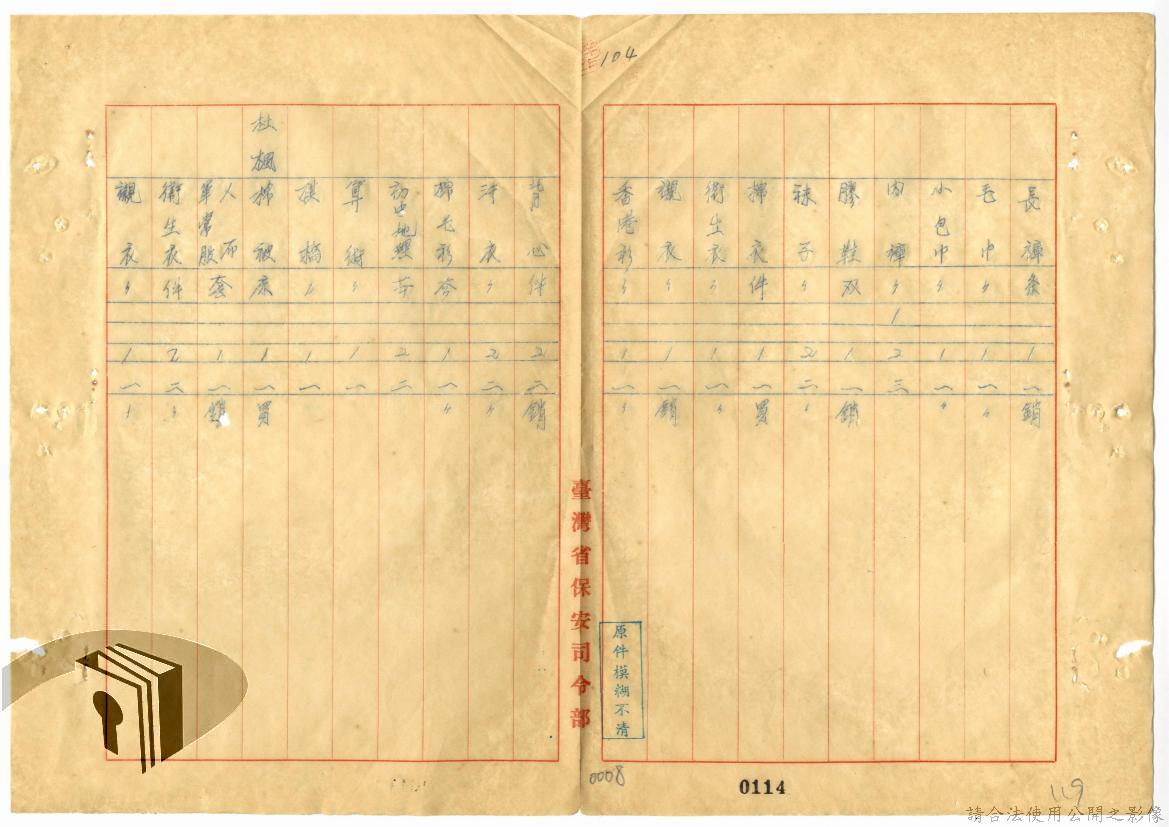 104
長褲 條 1 一 銷
毛巾 〃 1 一 〃
小包巾 〃 1 一 〃
內褲 〃 1 2 三
膠鞋 双 1 一 銷
袜子 〃 2 二 〃
棉衣 件 1 一 買
衛生衣 〃 1 一 〃
襯衣 〃 1 一 銷
香港衫 〃 1 一 〃
背心 件 2 二 銷
汗衣 〃 2 二 〃
棉毛衫 1 一 〃
初中地 2 二
算術 〃 1 一
1 一
杜楓
棉被 床 1 一 買
軍常服 套 1 一 銷
衛生衣 件 2 二 〃
襯衣 〃 1 一 〃
臺灣省保安司令部
原件模糊不清
0008
0114
119
請合法使用公開之影像